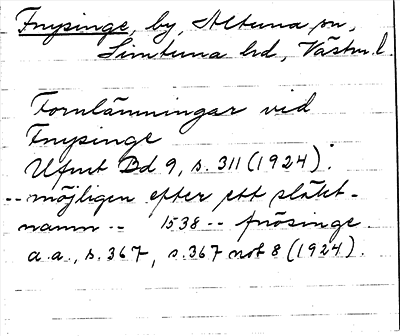 Frysinge, by, Altuna sn,
Simtuna hd, Västm. l.
Fornlämningar vid
Frysinge
Ufmt Bd 9, s. 311 (1924).
-- möjligen efter ett släkt-
namn -- 1538 -- frösinge.
a.a., s. 367, s. 367 not 8 (1924).